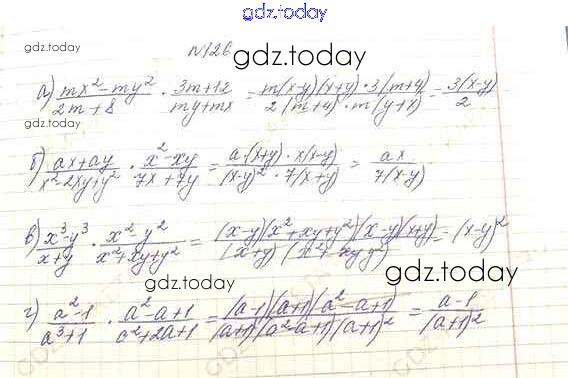 gdz.today
gdz.today
№126
gdz.today
а) (mx²-my²)/(2m+8) · (3m+12)/(my+mx) = (m(x-y)(x+y)·3(m+4))/(2(m+4)·m(y+x)) = 3(x-y)/2
б) (ax+ay)/(x²-2xy+y²) · (x²-xy)/(7x+7y) = (a·(x+y)·x(x-y))/((x-y)²·7(x+y)) = ax/(7(x-y))
в) (x³-y³)/(x+y) · (x²-y²)/(x²+xy+y²) = ((x-y)(x²+xy+y²)(x-y)(x+y))/((x+y)(x²+xyy²)) = (x-y)²
gdz.today
gdz.today
г) (a²-1)/(a³+1) · (a²-a+1)/(a²+2a+1) = ((a-1)(a+1)(a²-a+1))/((a+1)(a²-a+1)(a+1)²) = (a-1)/(a+1)²